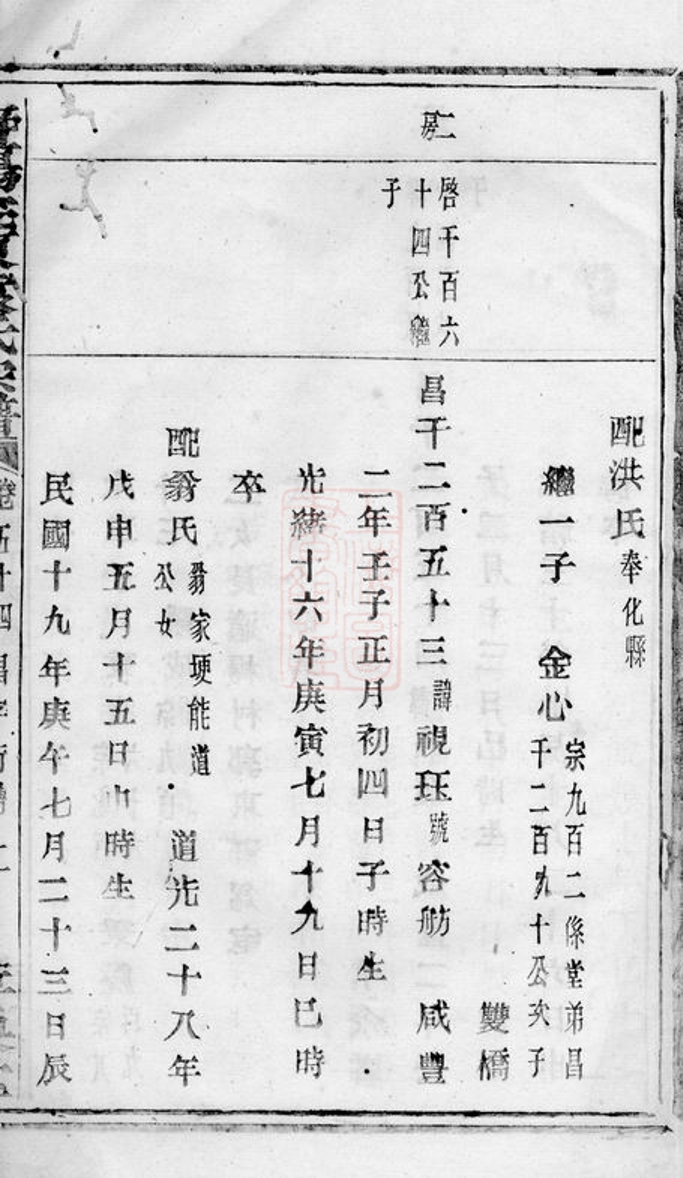 二
房
啓千百六
十四公繼
子
配洪氏奉化縣
繼一子 金心宗九百二係堂弟昌
千二百九十公次子
雙橋
昌千二百五十三諱視珏號容舫 咸豐
二年壬子正月初四日子時生
光緒十六年庚寅七月十九日巳時
卒
配翁氏翁家埂能道
公女 道光二十八年
戊申五月十五日 時生
民國十九年庚午七月二十三日辰
氏宗譜 卷 五十四 昌字行